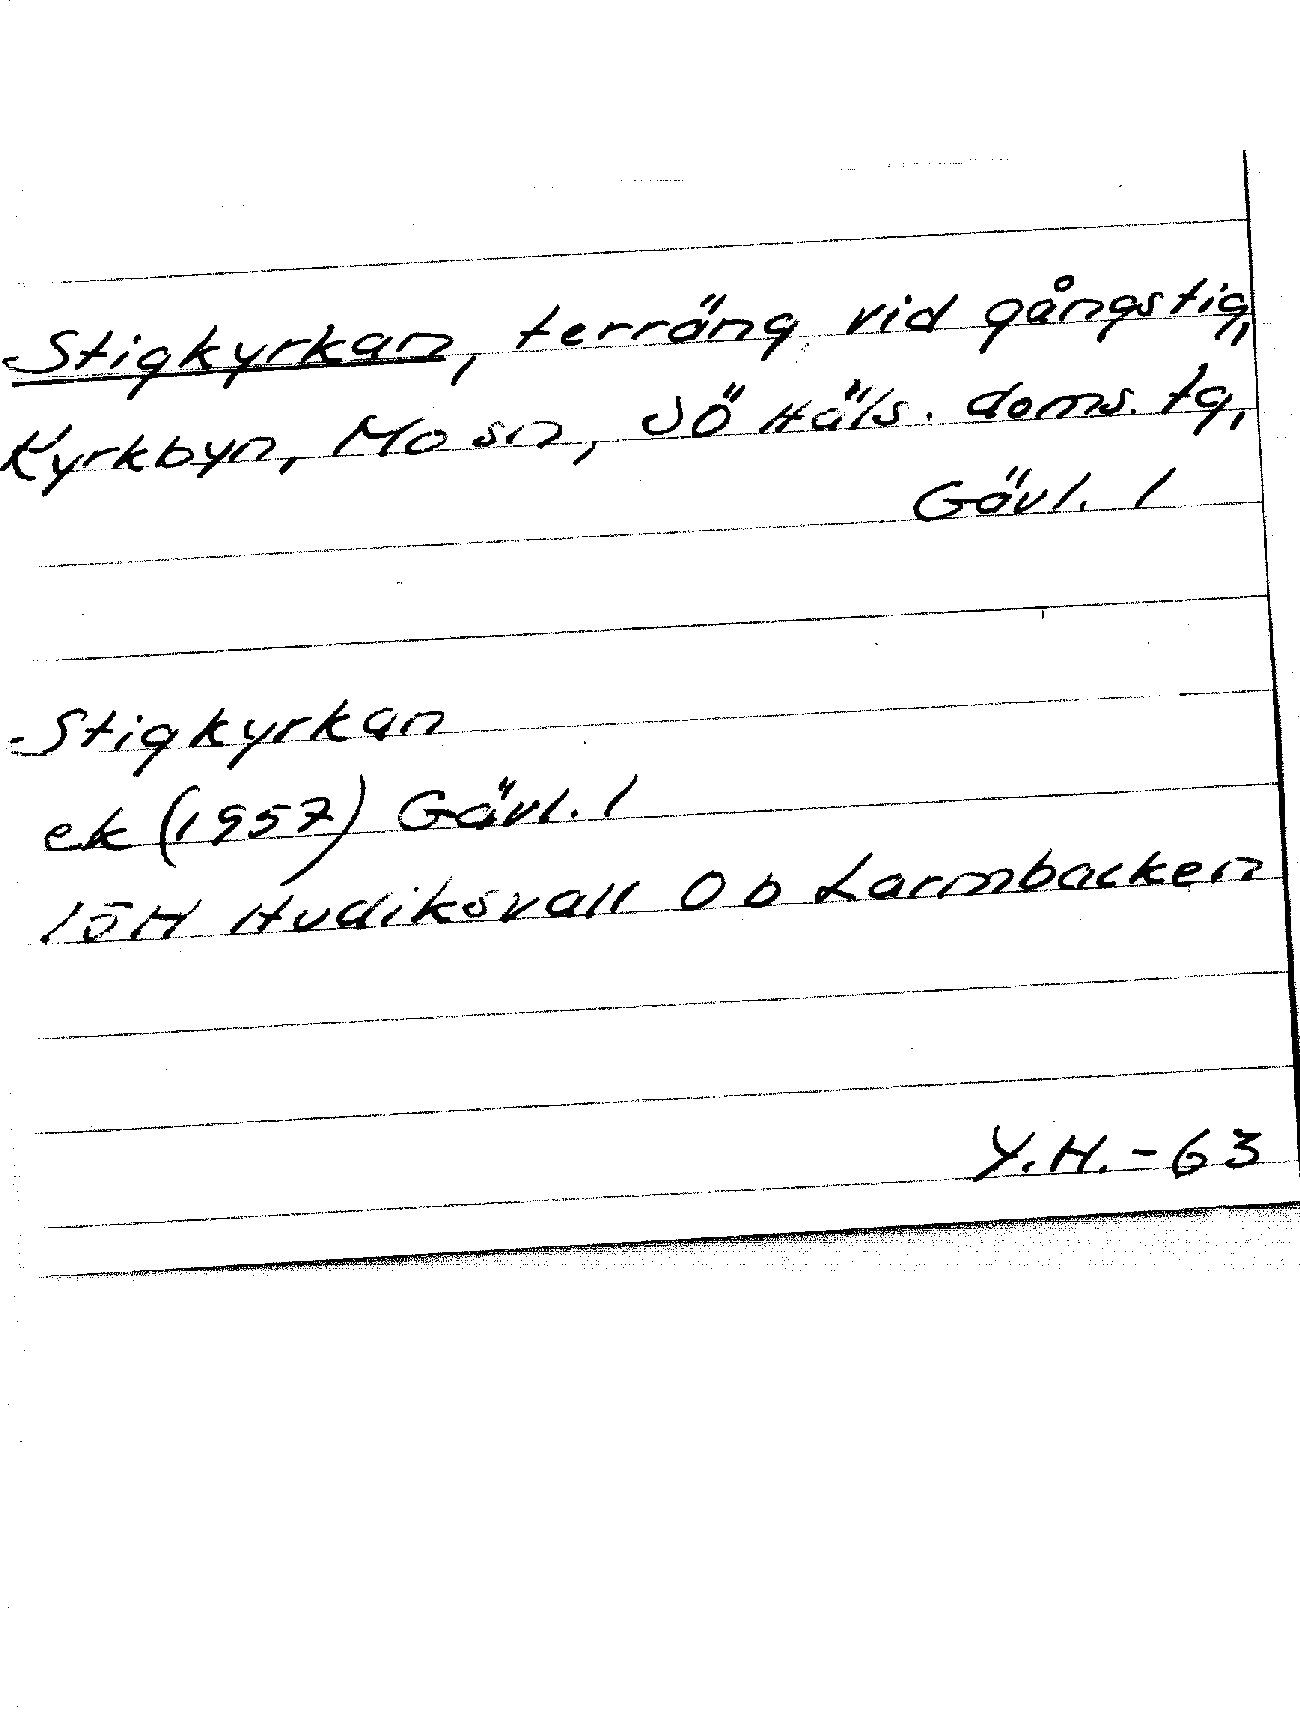 Stigkyrkan, terräng vid gångstig,
Kyrkbyn, Mo sn, SÖ Häls. doms. tg,
Gävl. l
Stigkyrkan
ek (1957) Gävl. l
15H Hudiksvall 0b Larmbacken
Y.H.-63